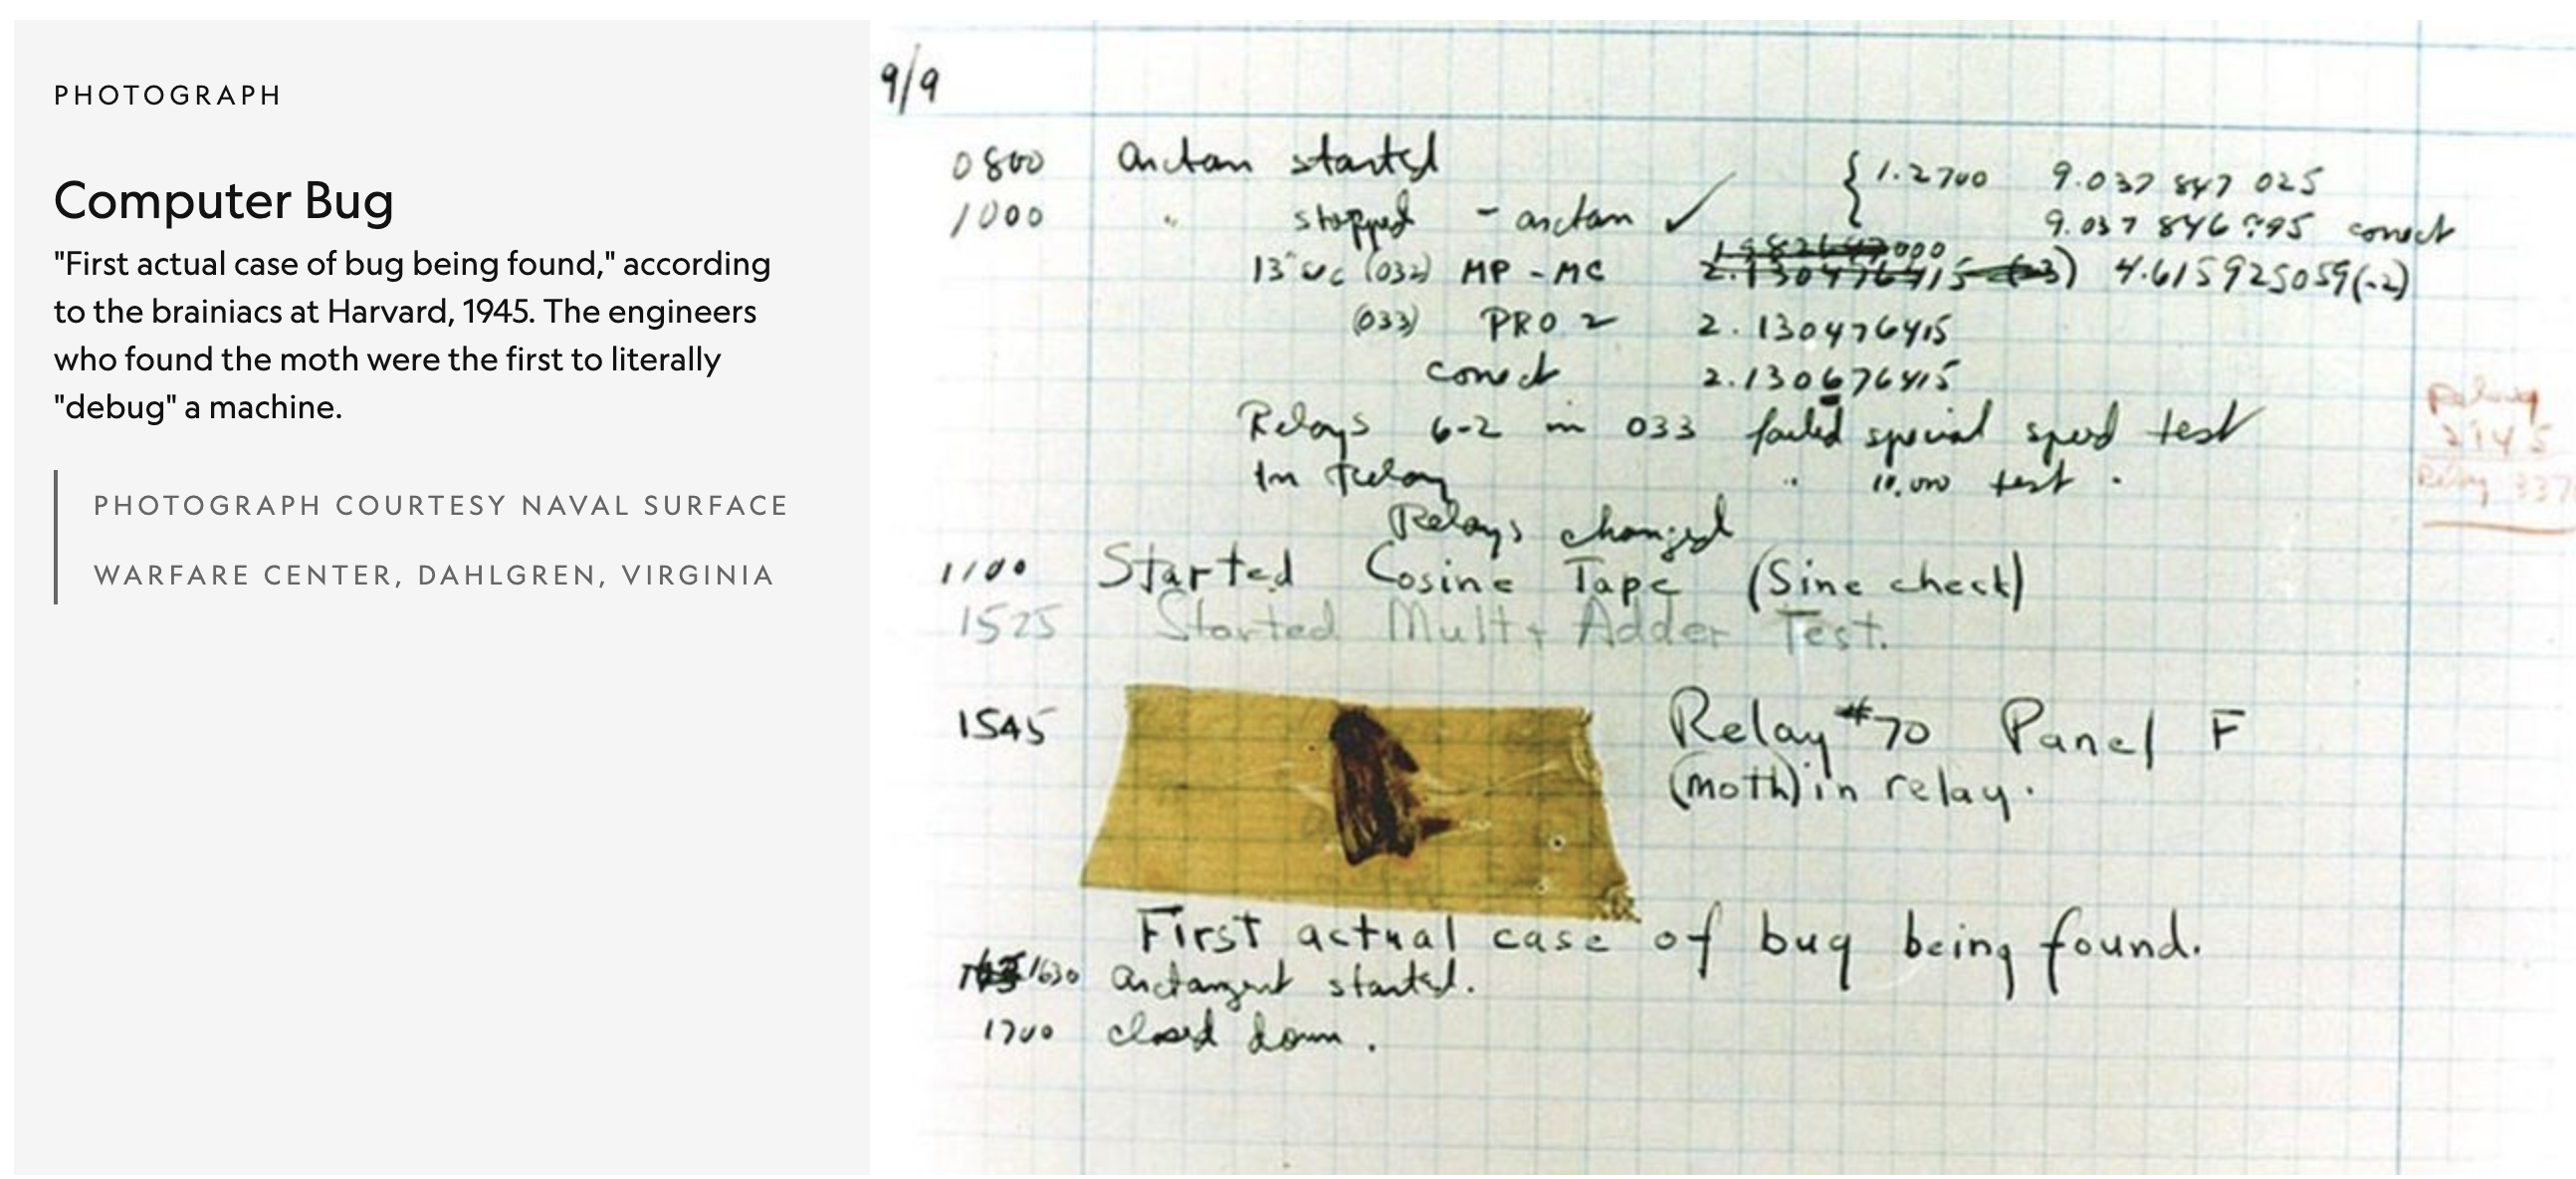 PHOTOGRAPH
Computer Bug
"First actual case of bug being found," according
to the brainiacs at Harvard, 1945. The engineers
who found the moth were the first to literally
"debug" a machine.
PHOTOGRAPH COURTESY NAVAL SURFACE
WARFARE CENTER, DAHLGREN, VIRGINIA
9/9
0800 arctan started { 1.2700 9.037 847 025
1000 " stopped - arctan ✓ 9.037 846 correct
(032) MP - MC 4.615925059(-2)
(033) PRO 2 2.130476415
correct 2.130676415
Relays 6-2 in 033 failed special speed test
In relay " 10.000 test .
Relays changed
1100 Started Cosine Tape (Sine check)
1525 Started Mult + Adder Test.
1545 Relay #70 Panel F
(moth) in relay.
First actual case of bug being found.
1630 arctangent started.
1700 closed down .
Relay
2145
Relay 337